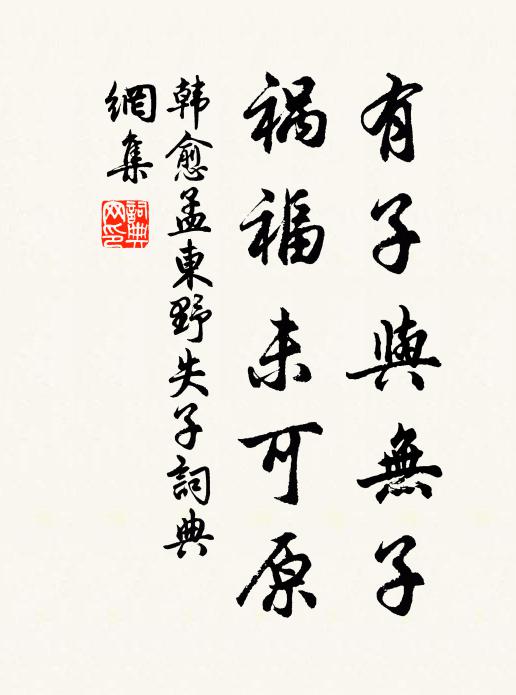 有子與無子
禍福未可原
韩愈孟東野失子詞典
網集
詞典網印